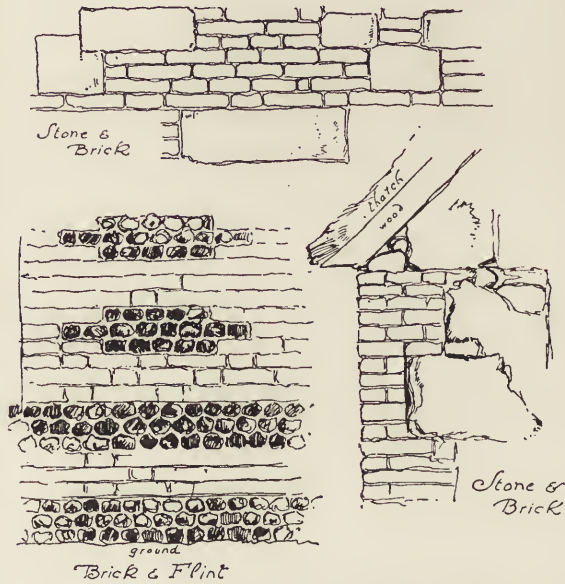 Stone &
Brick
thatch
wood
Stone &
Brick
ground
Brick & Flint